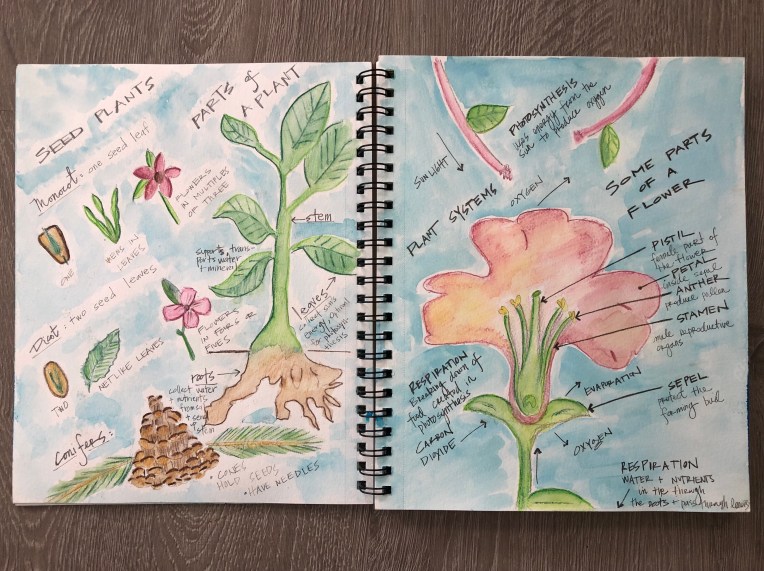 SEED PLANTS
Monocot: one seed leaf
ONE
VEINS IN
LEAVES
FLOWERS
IN MULTIPLES
OF THREE
Dicot: two seed leaves
TWO
NETLIKE LEAVES
FLOWERS
IN FOURS OR
FIVES
Conifers:
• CONES
HOLD SEEDS
• HAVE NEEDLES
PARTS of
A PLANT
stem
supports, trans-
ports water
+ minerals
leaves
collect sun's
energy
for photosyn-
thesis
roots
collect water
+ nutrients
+ send
stem
PHOTOSYNTHESIS
uses energy from the
sun to produce oxygen
SUNLIGHT
OXYGEN
PLANT SYSTEMS
SOME PARTS
OF A
FLOWER
PISTIL
female part of
the flower
PETAL
inside sepal
ANTHER
produce pollen
STAMEN
male reproductive
organs
EVAPORATION
SEPEL
protect the
forming bud
RESPIRATION
Breaking down of
fuel created in
photosynthesis
CARBON
DIOXIDE
OXYGEN
RESPIRATION
WATER + NUTRIENTS
in the through
the roots + pass through leaves